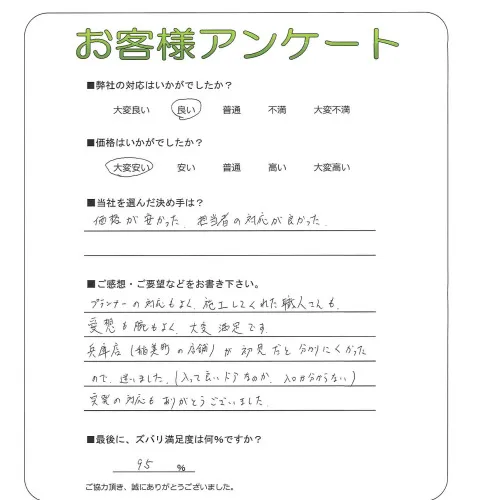 お客様アンケート
■弊社の対応はいかがでしたか？
大変良い 良い 普通 不満 大変不満
■価格はいかがでしたか？
大変安い 安い 普通 高い 大変高い
■当社を選んだ決め手は？
価格が安かった。担当者の対応が良かった。
■ご感想・ご要望などをお書き下さい。
プランナーの対応もよく、施工してくれた職人さんも、
愛想も腕もよく、大変満足です。
兵庫店(稲美町の店舗)が初見だと分かりにくかった
ので、迷いました。(入って良いトコなのか、入口が分からない)
の対応もありがとうございました。
■最後に、ズバリ満足度は何%ですか？
95 %
ご協力頂き、誠にありがとうございました。